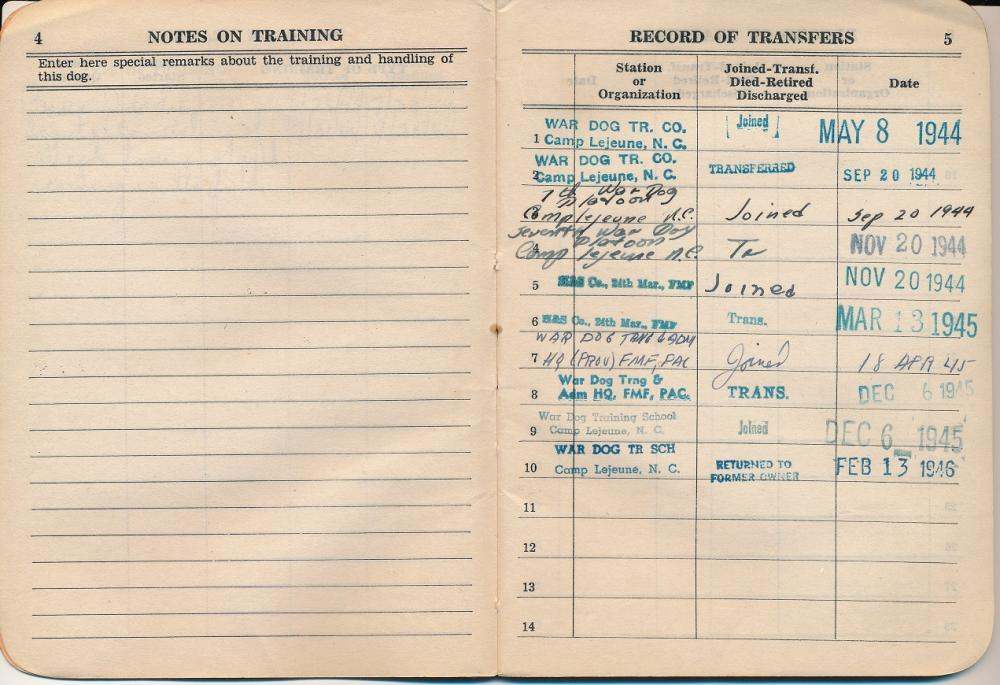 4
NOTES ON TRAINING
Enter here special remarks about the training and handling of
this dog.
RECORD OF TRANSFERS
5
Station
or
Organization
Joined-Transf.
Died-Retired
Discharged
Date
WAR DOG TR. CO.
1 Camp Lejeune, N. C. Joined MAY 8 1944
WAR DOG TR. CO.
2 Camp Lejeune, N. C. TRANSFERRED SEP 20 1944
7th War Dog
Platoon
Camp Lejeune N.C. Joined Sep 20 1944
Seventh War Dog
Platoon
Camp Lejeune N.C. Tr NOV 20 1944
5 H&S Co., 24th Mar., FMF Joined NOV 20 1944
6 H&S Co., 24th Mar., FMF Trans. MAR 13 1945
WAR DOG TRNG & ADM
7 HQ (PROV) FMF, PAC Joined 18 APR 45
War Dog Trng &
8 Adm HQ, FMF, PAC. TRANS. DEC 6 1945
War Dog Training School
9 Camp Lejeune, N. C. Joined DEC 6 1945
WAR DOG TR SCH
10 Camp Lejeune, N. C. RETURNED TO FORMER OWNER FEB 13 1946
11
12
13
14